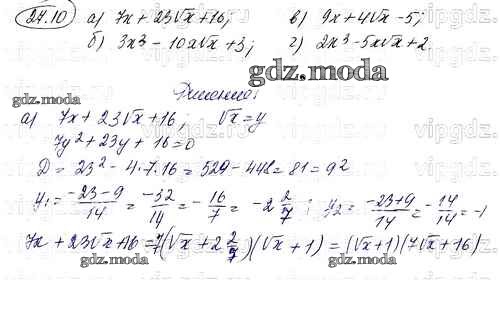 27.10 а) 7x + 23√x + 16; в) 9x + 4√x - 5;
б) 3x³ - 10x√x + 3; г) 2x³ - 5x√x + 2
gdz.moda
Решение:
gdz.moda
а) 7x + 23√x + 16; √x = y
7y² + 23y + 16 = 0
D = 23² - 4·7·16 = 529 - 448 = 81 = 9²
y₁ = (-23-9)/14 = -32/14 = -16/7 = -2 2/7; y₂ = (-23+9)/14 = -14/14 = -1
7x + 23√x + 16 = 7(√x + 2 2/7)(√x + 1) = (√x + 1)(7√x + 16)
gdz.moda gdz.moda